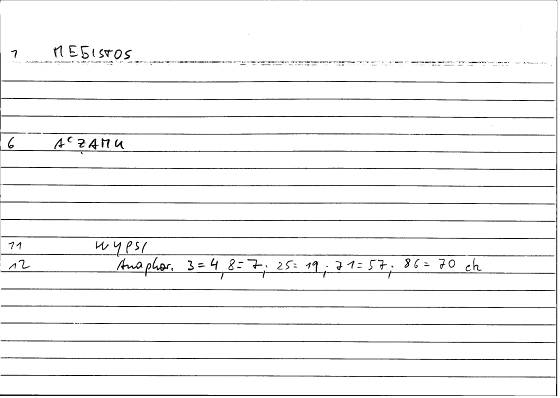 1 MEGISTOS
6 AcZAMU
11 WYPSI
12 Anaphor. 3=4, 8=7; 25=19; 71=57; 86=70 ch